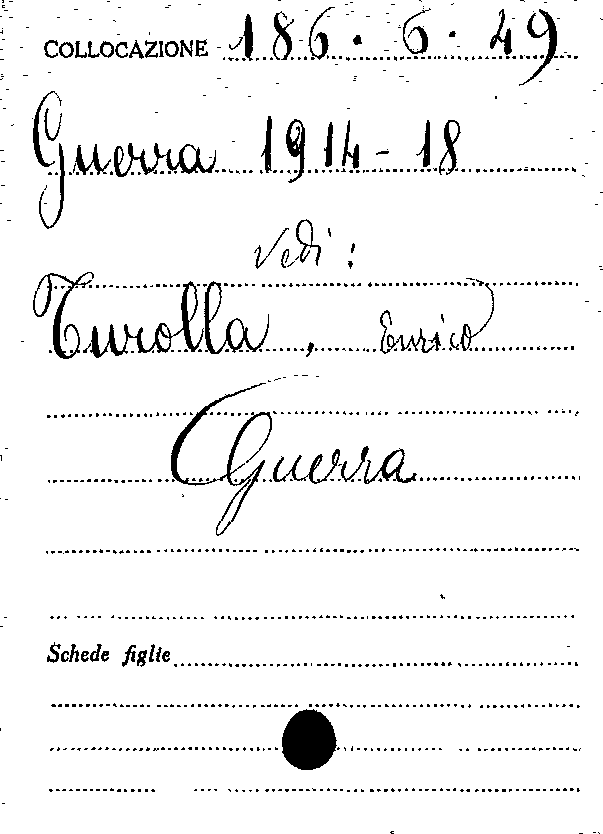 COLLOCAZIONE 186. 6. 49
Guerra 1914-18
Vedi:
Turolla, Enrico
Guerra
Schede figlie